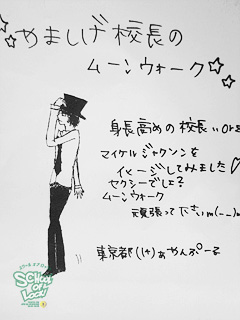 ☆やましげ校長の
ムーンウォーク☆
身長高めの校長
マイケルジャクソンを
イメージしてみました♡
セクシーでしょ?
ムーンウォーク
頑張って下さいm(__)m
東京都
SCHOOL OF LOCK!